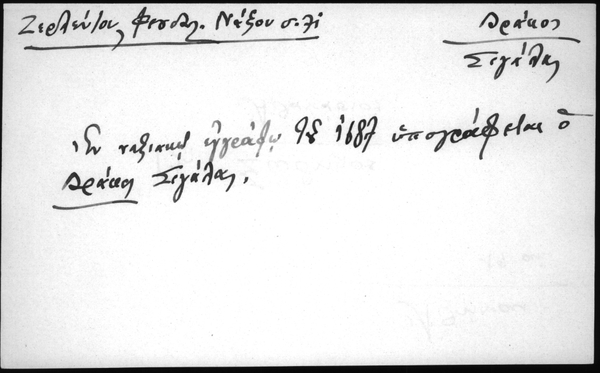 Ζερλέντου, Φεουδαλ. Νάξου σελ.
Δράκος
Σιγάλας
Ἐν ναξιακῷ ἐγγράφῳ τοῦ 1687 ὑπογράφεται ὁ
Δράκος Σιγάλας.